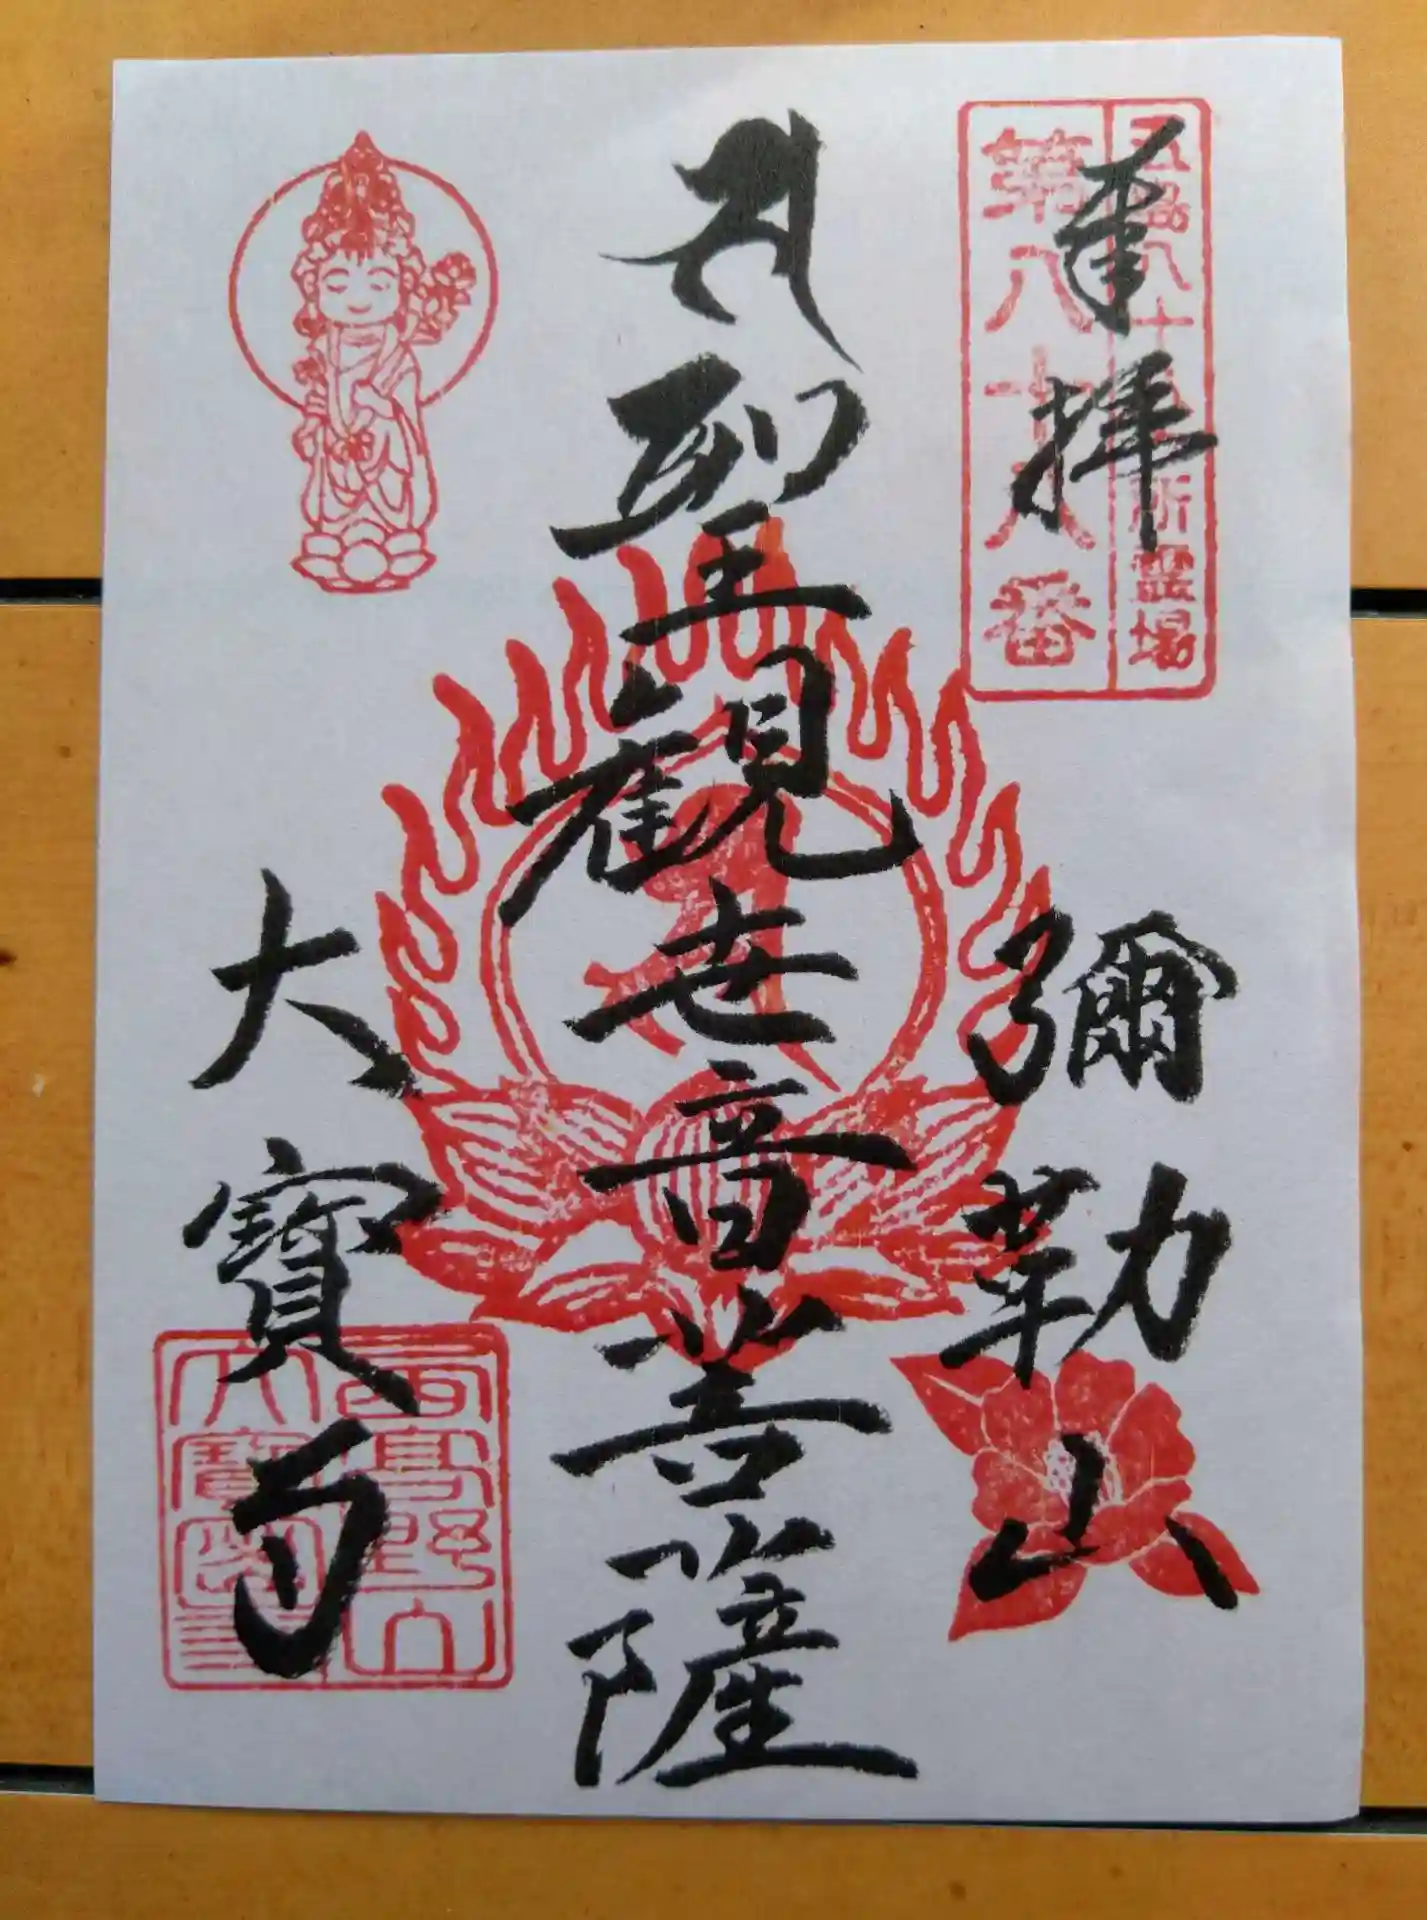 奉拝
五島八十八ヶ所霊場
第八十八番
彌勒山
聖観世音菩薩
大寳寺
西高野山
大寳